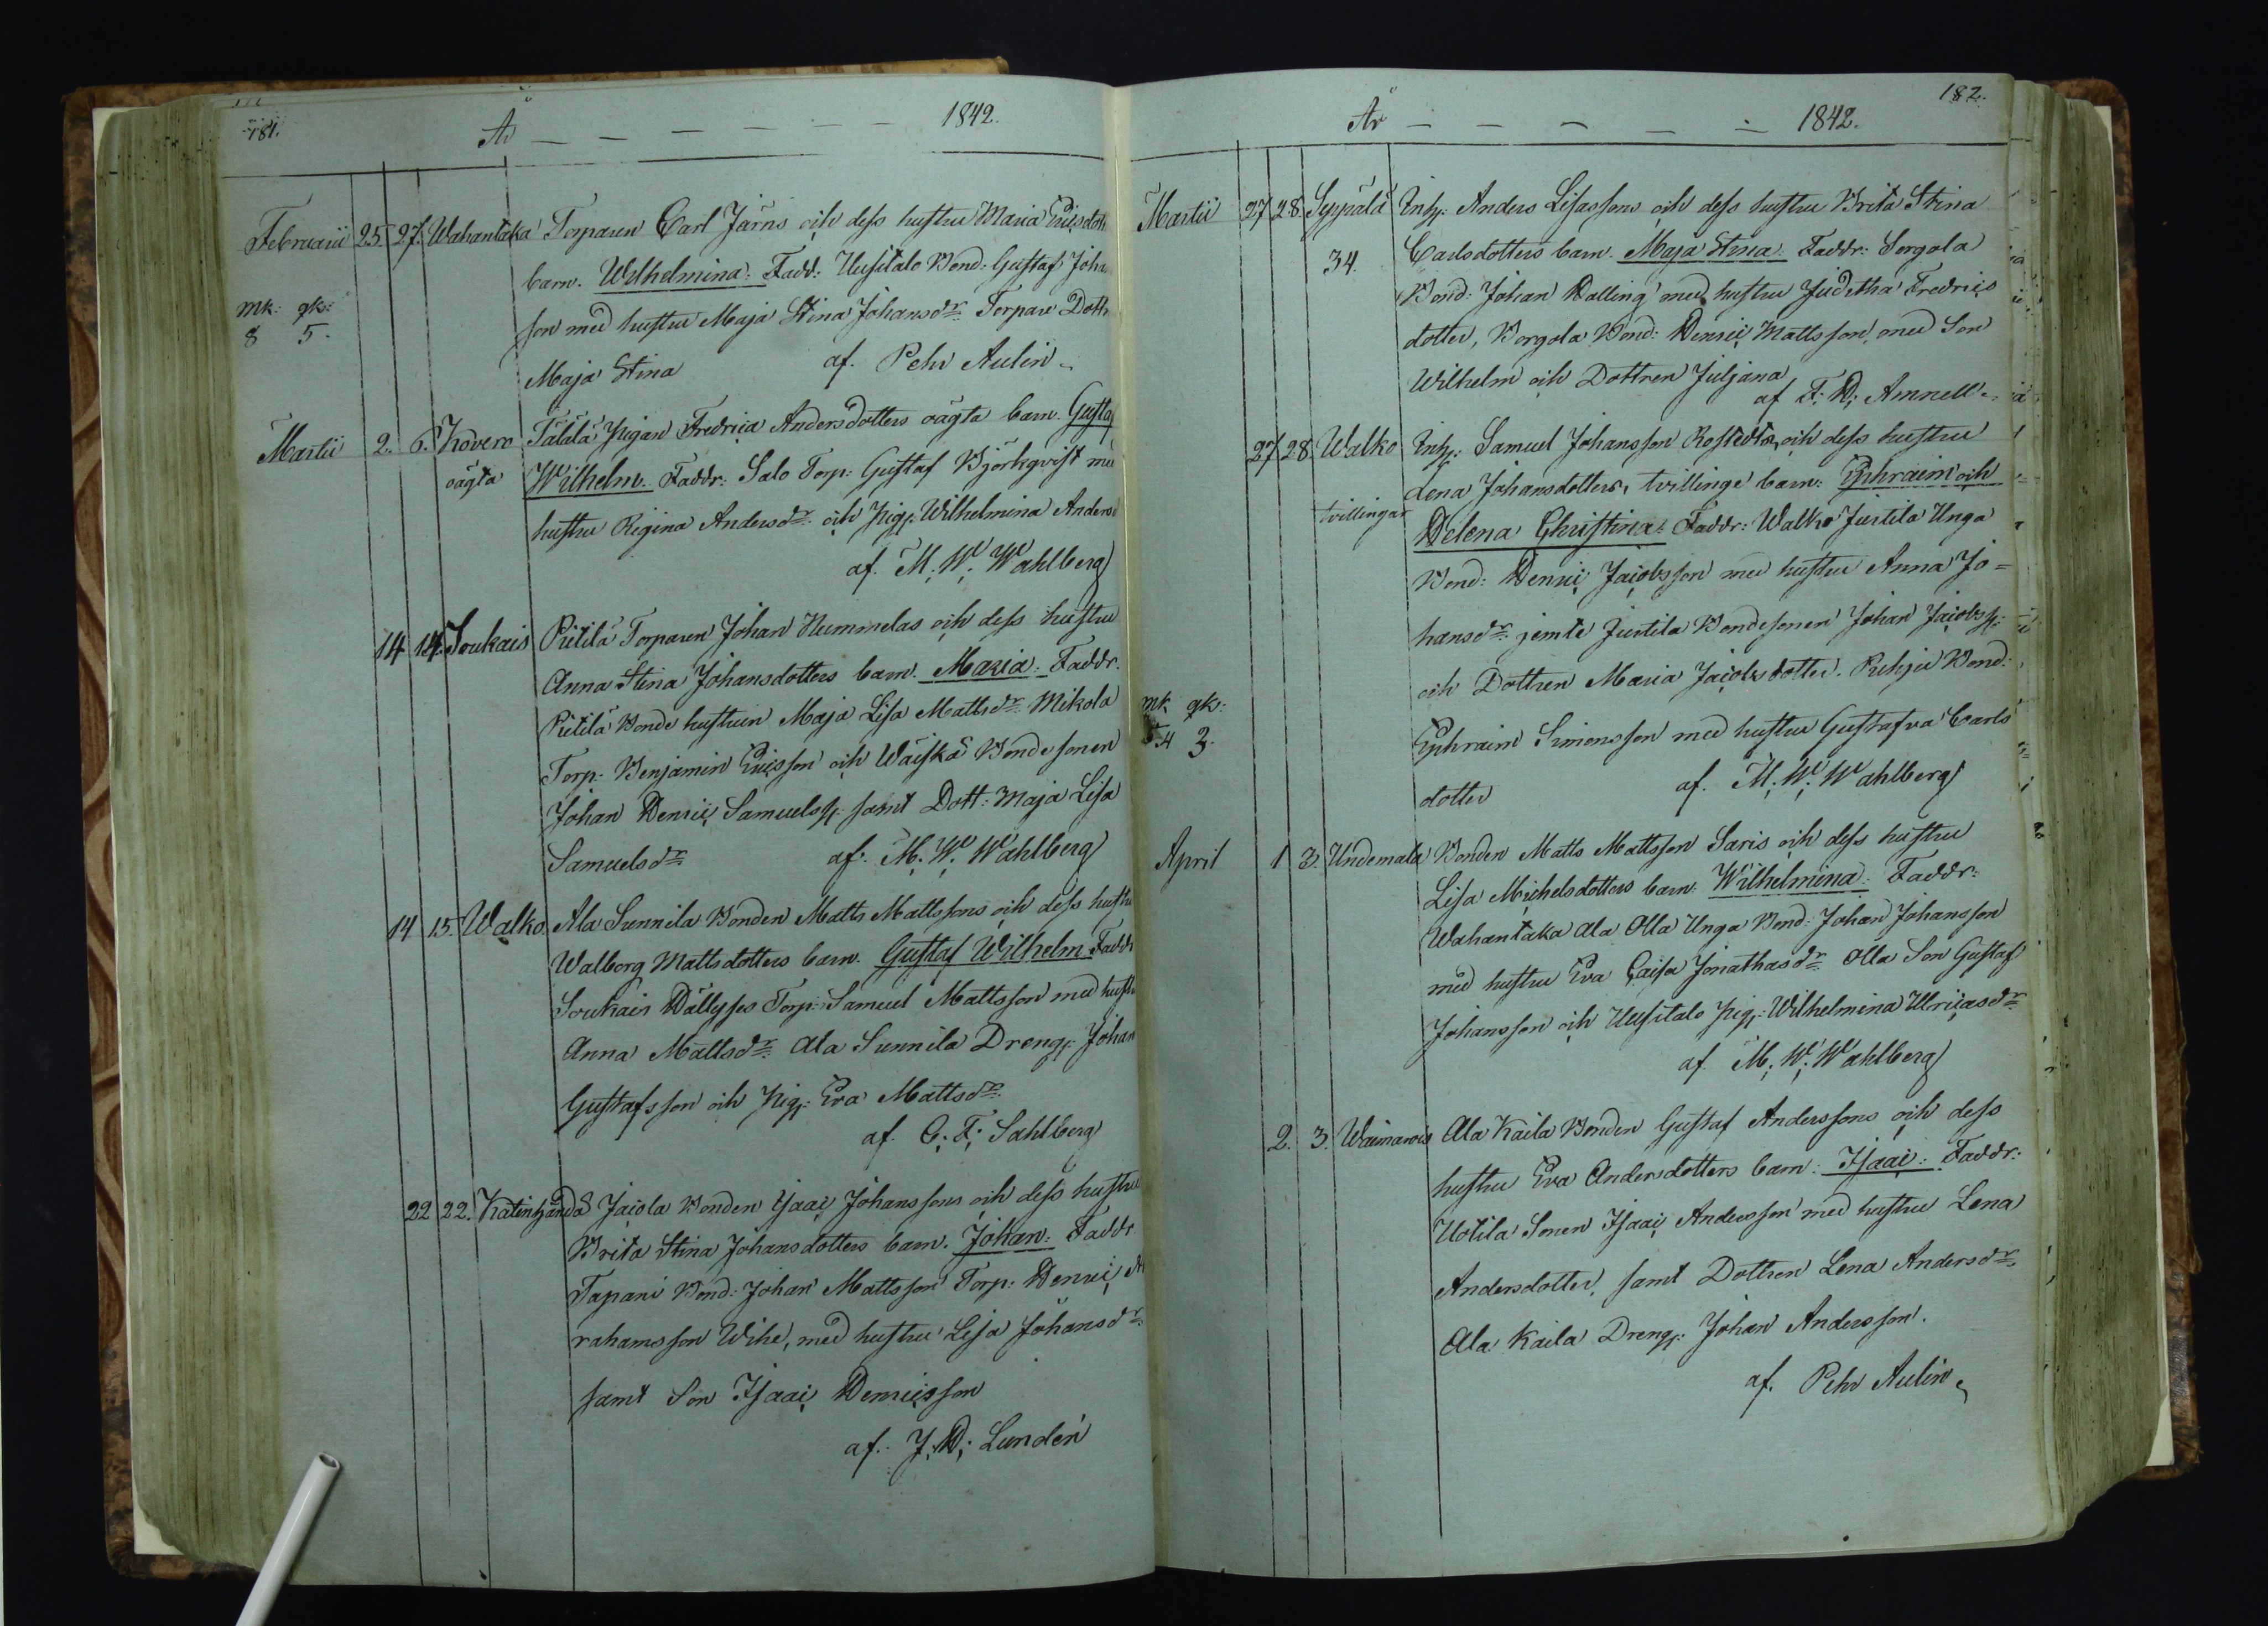 181.
År — — — — — — 1842.
Februarii 25 27. Wahantaka Torparen Carl Järns och dess hustru Maria Ericsdott
barn. Wilhelmina: Fadd: Uusitalo Bond: Gustaf Joha
mk: qk:
8 5.
son med hustru Maja Stina Johansdr Torpare Dott
Maja Stina af. Pehr Aulin
Martii 2. 6. Kovero Tälälä Pigan Fredrica Andersdotters oägta barn. Gustaf
oägta Wilhelm. Faddr: Salo Torp: Gustaf Björkqvist me
hustru Rigina Andersdr: och Pig: Wilhelmina Anders
af. M. W. Wahlberg
14 14. Soukais Pietilä Torparen Johan Hummelas och dess hustru
Anna Stina Johansdotters barn. Maria. Faddr.
Pietilä Bonde hustrun Maja Lisa Mattsdr: Mikola
Torp: Benjamin Ericsson och Wäiskä Bondesonen
Johan Henric Samuelss: samt Dott: Maja Lisa
Samuelsdr af. M. W. Wahlberg
14 15. Walko. Ala Sunnila Bonden Matts Mattssons och dess hustru
Walborg Mattsdotters barn. Gustaf Wilhelm. Faddr
Soukais Hällyses Torp: Samuel Mattsson med hustr
Anna Mattsdr: Ala Sunnila Dreng: Johan
Gustafsson och Pig: Eva Mattsdr:
af. C. F. Sahlberg
22 22. Katinhändä Jacola Bonden Isaac Johanssons och dess hustru
Brita Stina Johansdotters barn. Johan: Faddr
Tapani Bond: Johan Mattsson Torp: Henric A
rahamsson Wihe, med hustru Lisa Johansdr:
samt Son Isaac Henricsson
af. J. H. Lundén
182.
År — — — — — 1842.
Martii 27 28 Syypälä Inh: Anders Lisassons och dess hustru Brita Stina
34. Carlsdotters barn. Maja Stina. Faddr: Sorgola
Bond: Johan Halling med hustru Juditha Fredrics
dotter, Borgola Bond: Henric Mattsson, med Son
Wilhelm och Dottren Juljana
af F. H. Amnell
27 28 Walko Inh: Samuel Johansson Rostedts, och dess hustru
Lena Johansdotters, tvillinge barn: Ephraim och
tvillingar Helena Christina: Faddr: Walko Juttila Unga
Bond: Henric Jacobsson med hustru Anna Jo=
hansdr: jemte Juttila Bondesonen Johan Jacobss:
och Dottren Maria Jacobsdotter. Puhju Bond:
mk qk:
54 3.
Ephraim Simonsson med hustru Gustafva Carls
dotter af. M. W. Wahlberg
April 1 3. Undemala Bonden Matts Mattsson Saris och dess hustru
Lisa Michelsdotters barn: Wilhelmina. Faddr:
Wahantaka Ala Olla Unga Bond: Johan Johansson
med hustru Eva Caisa Jonathasdr: Olla Son Gustaf
Johansson och Uusitalo Pig: Wilhelmina Ulricasdr:
af. M. W. Wahlberg
2. 3. Wainarois Ala Kaila Bonden Gustaf Anderssons och dess
hustru Eva Andersdotters barn: Isaac: Faddr:
Uotila Sonen Isaac Andersson med hustru Lena
Andersdotter, samt Dottren Lena Andersdr:
Ala Kaila Dreng: Johan Andersson.
af. Pehr Aulin